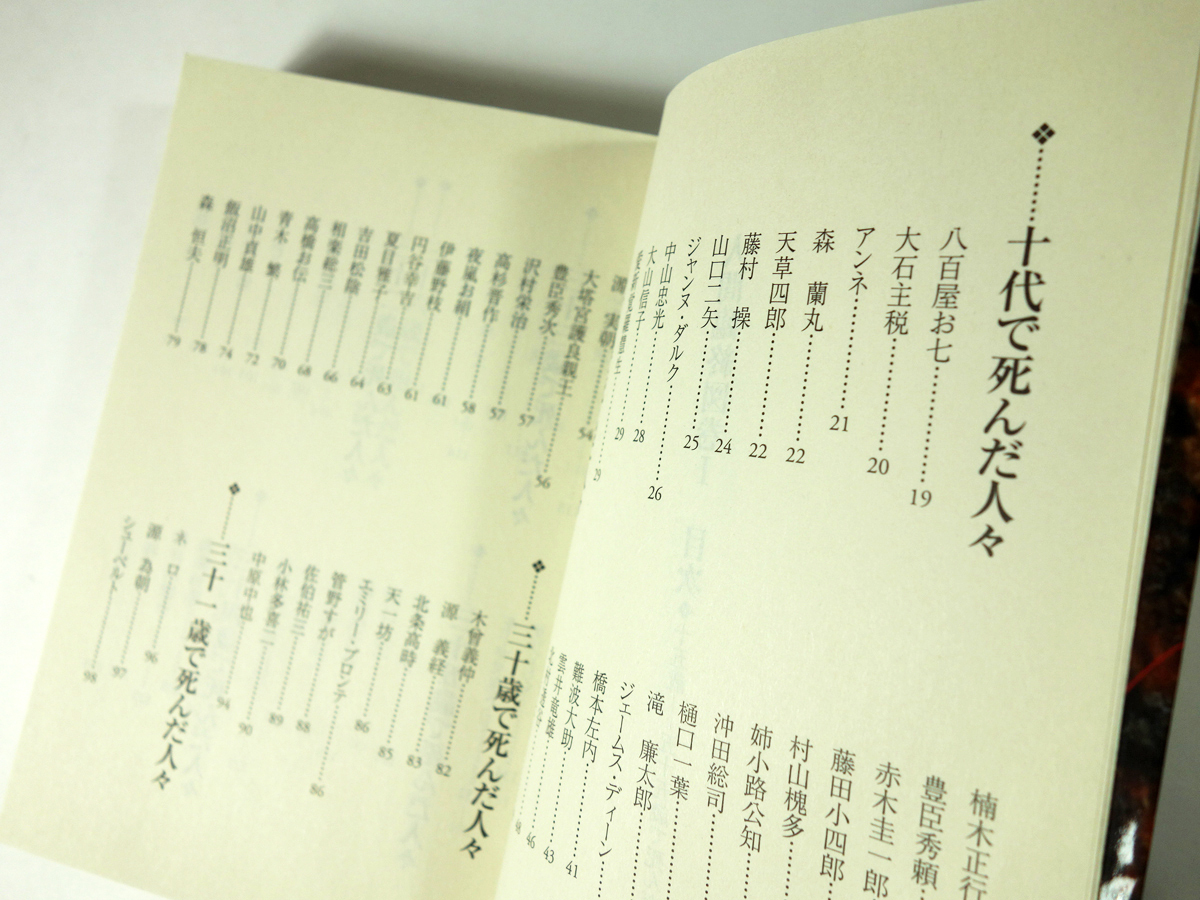 十代で死んだ人々
八百屋お七 19
大石主税 20
アンネ 21
森 蘭丸 22
天草四郎 22
藤村 操 24
山口二矢 25
ジャンヌ・ダルク 26
中山忠光 28
大山信子 29
楠木正行
豊臣秀頼
赤木圭一郎
藤田小四郎
村山槐多
姉小路公知
沖田総司
樋口一葉
滝 廉太郎
ジェームス・ディーン
橋本左内 41
難波大助 43
雲井竜雄 46
源 実朝 54
大塔宮護良親王 56
豊臣秀次 57
沢村栄治 57
高杉晋作 58
夜嵐お絹 61
伊藤野枝 61
円谷幸吉 63
夏目雅子 64
吉田松陰 66
相楽総三 68
高橋お伝 70
青木 繁 72
山中貞雄 74
飯沼正明 78
森 恒夫 79
三十歳で死んだ人々
木曾義仲 82
源 義経 83
北条高時 85
天一坊 86
エミリー・ブロンテ 86
管野すが 88
佐伯祐三 89
小林多喜二 90
中原中也 94
三十一歳で死んだ人々
ネロ 96
源 為朝 97
シューベルト 98